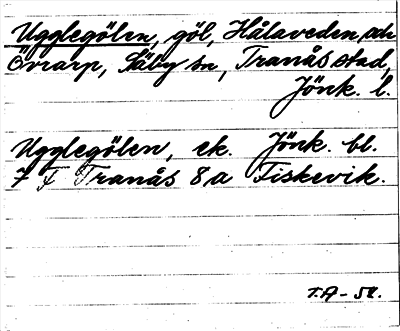 Ugglegölen, göl, Hålaveden, och
Övrarp, Säby sn, Tranås stad,
Jönk. l.
Ugglegölen, ek. Jönk. bl.
7 F Tranås 8a Fiskevik.
T.A - 58.